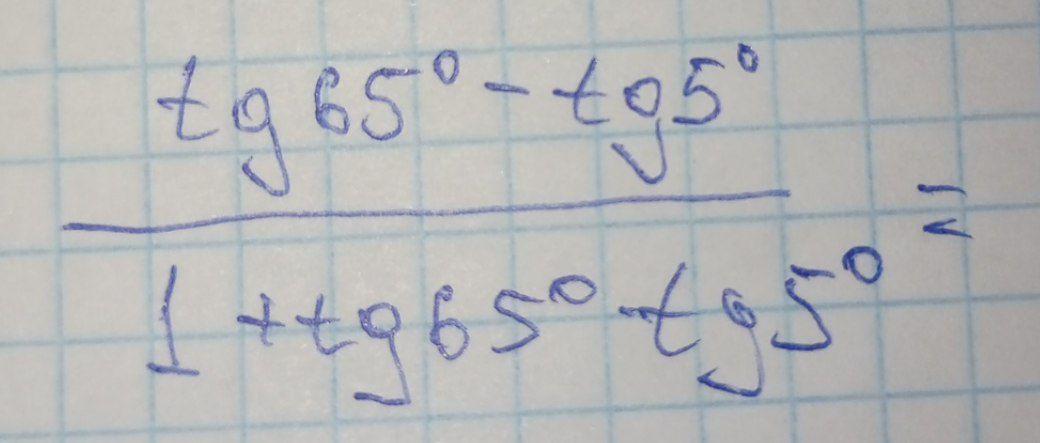 tg 65° - tg 5°
1 + tg 65° · tg 5° =